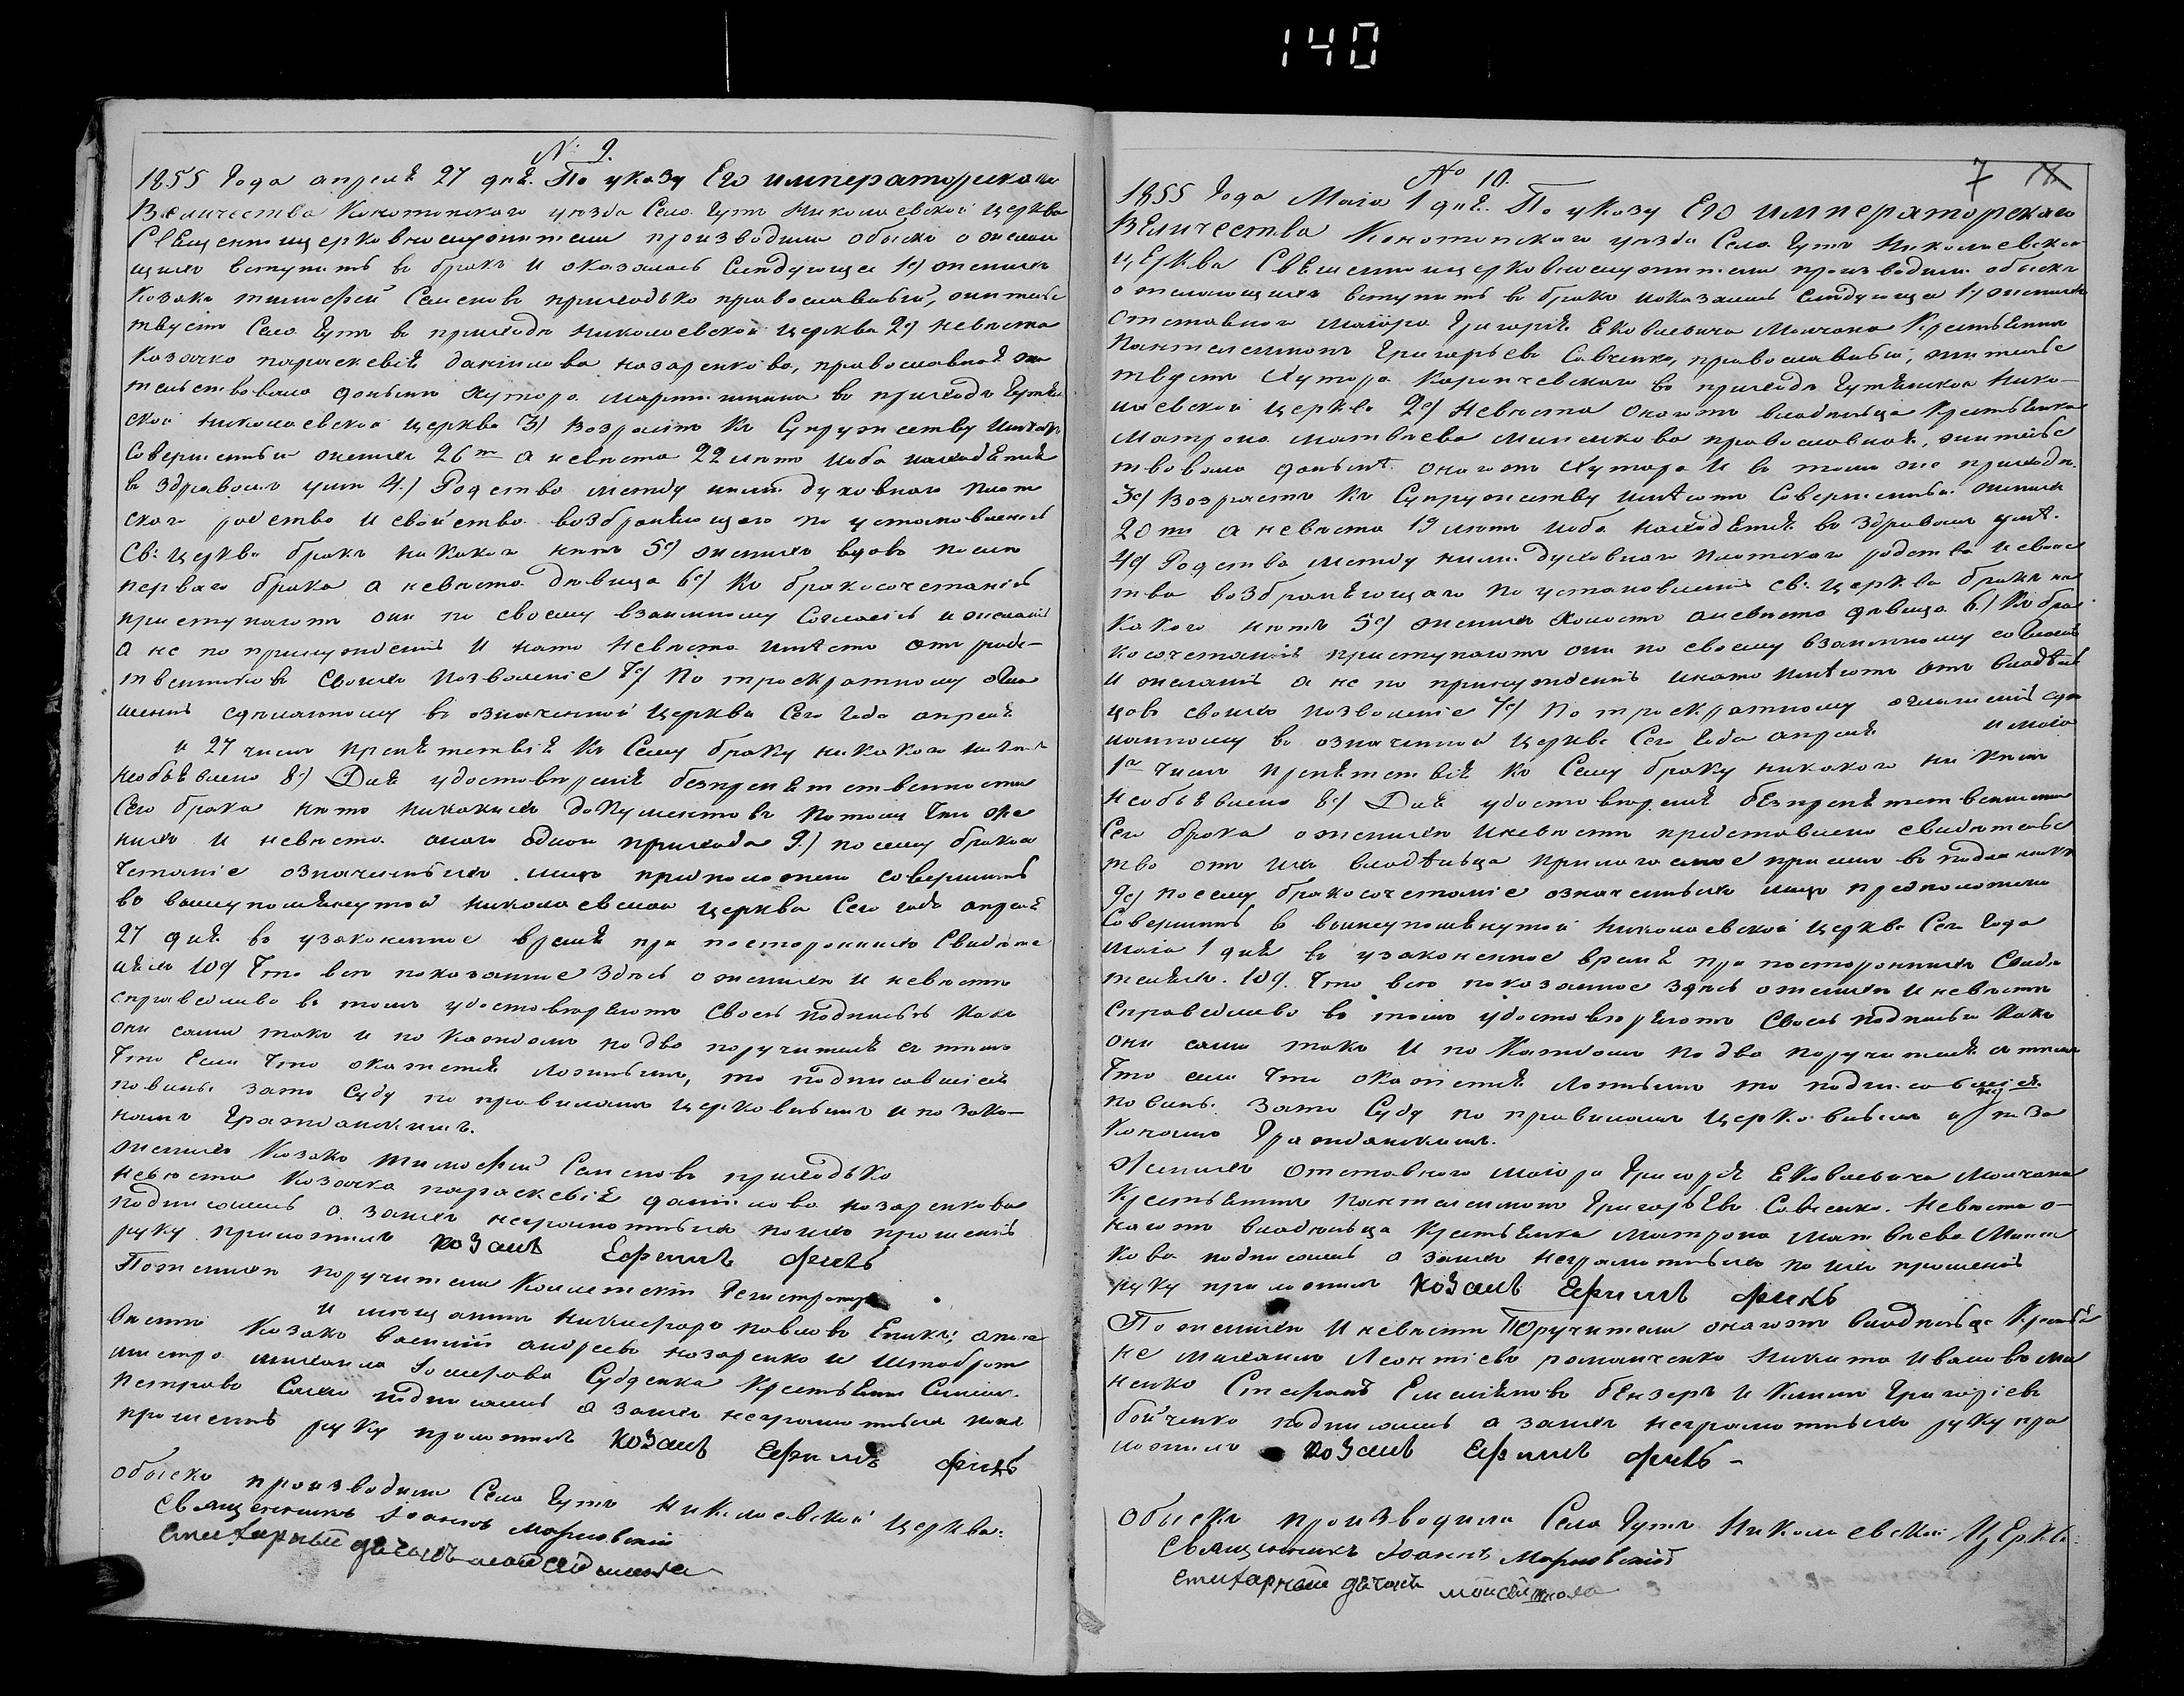 140
№ 9.
1855 Года апреля 27 дня. По указу Его императорскаго
Величества Конотопскаго уезда Села Гутъ Николаевской церкви
Священноцерковнослужители производили обыскъ о желаю
щихъ вступить въ бракъ и оказалось Следующее 1е) женихъ
козакъ тимофей Семеновъ приходько православный, жительс
твуетъ Села Гутъ въ приходе Николаевской церкви 2е) невеста
козачка параскевія данилова назаренкова, православная жи
тельствовала доныне Хутора въ приходе Гутян
ской Николаевской церкви 3) Возрастъ къ Супружеству имеютъ
Совершенный женихъ 26ть а невеста 22 летъ и оба находятся
въ здравомъ уме 4.) Родства между ними духовнаго плот
скаго родства и свойства возбраняющаго по установленію
Св: церкви бракъ никакого нетъ 5е) женихъ вдовъ после
перваго брака а невеста девица 6е) Къ бракосочетанію
приступаютъ они по своему взаимному Согласію и желанію
а не по принужденію и на то невеста имеетъ отъ родс-
твенниковъ своихъ позволеніе 7е) По троекратному огла
шенію сделанному въ означенной церкви Сего Года апреля
и 27 чиселъ препятствія къ Сему браку никакого никемъ
необъявлено 8е) Для удостоверенія безпрепятственности
Сего брака нетъ никакихъ документовъ потому что же
нихъ и невеста одного прихода 9.) посему бракосо
четаніе означенныхъ лицъ предположено совершить
въ вышеупомянутой николаевской церкви Сего года апреля
27 дня въ узаконенное время при постороннихъ Свидете
ляхъ 10е) Что все показанное здесь о женихе и невесте
справедливо въ томъ удостоверяютъ Своею подписью какъ
они сами такъ и по каждомъ по два поручителя съ темъ
что Если что окажется ложнымъ, то подписавшіеся
повинны зато Суду по правиламъ церковнымъ и по зако-
намъ Гражданскимъ.
женихъ Козакъ тимофей Семеновъ приходько
невеста Козачка параскевія данилова назаренкова
подписались а за нихъ неграмотныхъ по ихъ прошенію
руку приложилъ козакъ Ефимъ
По женихе поручители Колежскій Регистраторъ
и мещанинъ Никифоръ павловъ а по не
весте Козакъ василій андреевъ назаренко и Штабъ
михаила Субденка Крестьянинъ
петровъ подписались а за нихъ неграмотныхъ по ихъ
прошенію руку приложилъ козакъ Ефимъ
обыскъ производили Села Гутъ Николаевской церкви:
Священникъ Іоаннъ
стихарный дьячекъ
7
№ 10.
1855 Года Маія 1 дня. По указу Его императорскаго
Величества Конотопскаго уезда Села Гутъ Николаевской
церкви Священноцерковнослужители производили обыскъ
о желающихъ вступить въ бракъ и оказалось Следующее 1е) женихъ
отставного маіора Григорія Яковлевича Молчана Крестьянинъ
Пантелеимонъ Григорьевъ Савченко, православный, жительс
твуетъ Хутора въ приходе Гутянской Нико-
лаевской церкви 2е) Невеста оногожъ владельца Крестьянка
Матрона матвеева православная, жительс
твовала доныне оногожъ Хутора и въ томъ же приходе.
3е) Возрастъ къ Супружеству имеютъ Совершенный женихъ
20ть а невеста 19 летъ и оба находятся въ здравомъ уме.
4е) Родства между ними духовнаго плотскаго родства и свойс
тва возбраняющаго по установленію св: церкви бракъ ни
какого нетъ 5е) женихъ холостъ а невеста девица 6.) Къ бра
косочетанію приступаютъ они по своему взаимному согласію
и желанію а не по принужденію и на то имеютъ отъ владель
цовъ своихъ позволеніе 7е) По троекратному оглашенію сде
ланному въ означенной церкви Сего Года апреля и маія
1го чиселъ препятствія къ Сему браку никакого никемъ
необъявлено 8е) Для удостоверенія безпрепятственности
Сего брака о женихе и невесте представлено свидетельс
тво отъ ихъ владельца прилагаемое при семъ въ подлиннике
9е) посему бракосочетаніе означенныхъ лицъ предположено
Совершить въ вышеупомянутой Николаевской церкви Сего Года
маія 1 дня въ узаконенное время при постороннихъ Свиде
теляхъ. 10е. Что все показанное здесь о женихе и невесте
справедливо въ томъ удостоверяютъ Своею подписью какъ
они сами такъ и по каждомъ по два поручителя съ темъ
Что если что окажется ложнымъ то подписавшіеся
повинны зато Суду по правиламъ церковнымъ и по за
конамъ Гражданскимъ.
Женихъ отставного маіора Григорія Яковлевича Молчана
крестьянинъ пантелеимонъ Григорьевъ Савченко. Невеста о-
ногожъ владельца Крестьянка матрона матвеева
подписались а за нихъ неграмотныхъ по ихъ прошенію
руку приложилъ козакъ Ефимъ
По женихе и невесте Поручители оногожъ владельца Крестья
не михаилъ Леонтіевъ романченко Никита Ивановъ
Стефанъ и Григоріевъ
бойченко подписались а за нихъ неграмотныхъ руку при
ложилъ козакъ Ефимъ
Обыскъ производили Села Гутъ Николаевской Церкви:
Священникъ Іоаннъ
стихарный дьячекъ